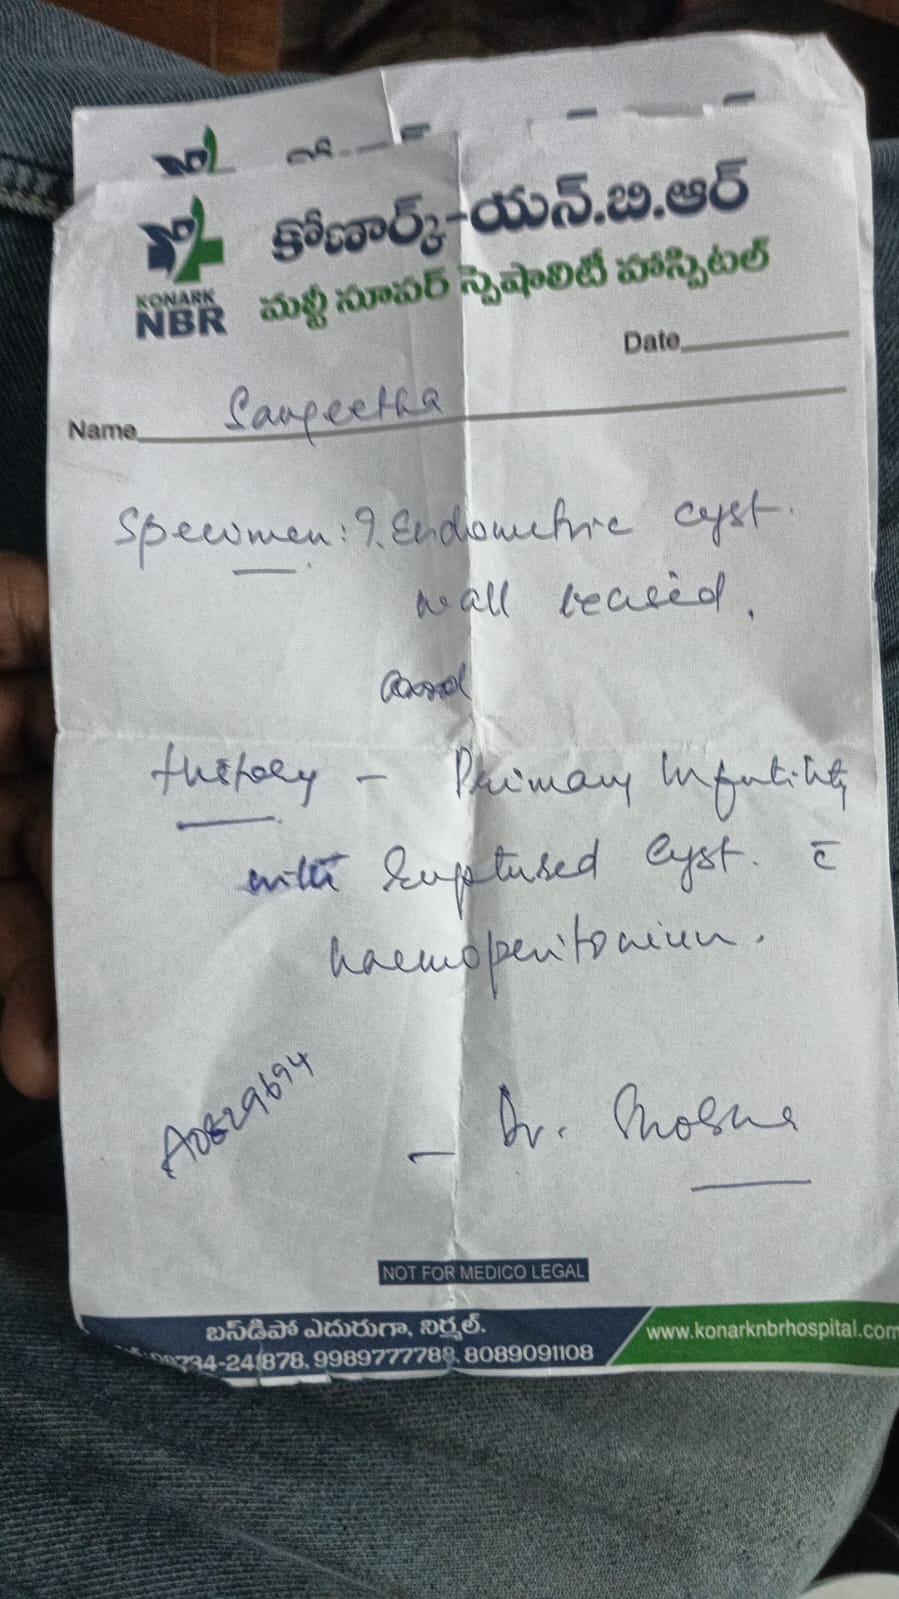 కోణార్క్-యన్.బి.ఆర్
మల్టీ సూపర్ స్పెషాలిటీ హాస్పిటల్
KONARK
NBR
Date
Name Sangeetha
Specimen: ?. Endometric cyst.
wall
History - Primary Infutility
with Ruptured Cyst. c̄
haemoperitonium.
A0829694
- Dr.
NOT FOR MEDICO LEGAL
బస్‌డిపో ఎదురుగా, నిర్మల్.
734-241878, 9989777788, 8089091108
www.konarknbrhospital.com